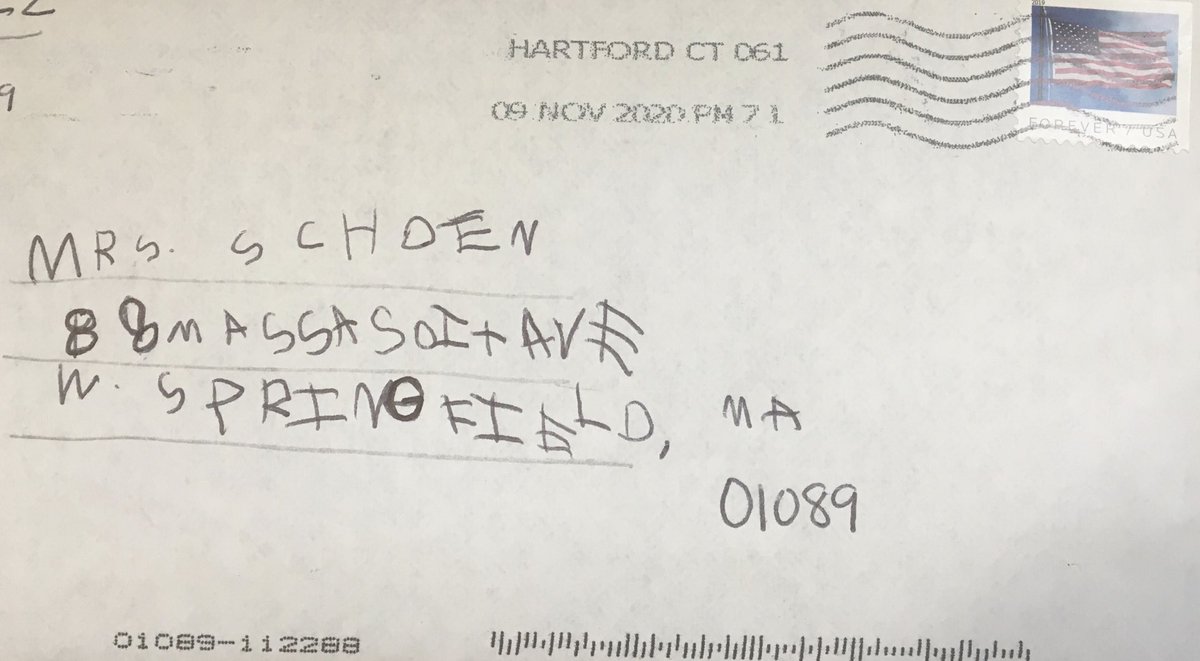 HARTFORD CT 061
09 NOV 2020 PM 7 L
2019
FOREVER / USA
MRS. SCHOEN
88 MASSASOIT AVE
W. SPRINGFIELD, MA
01089
01089-112288